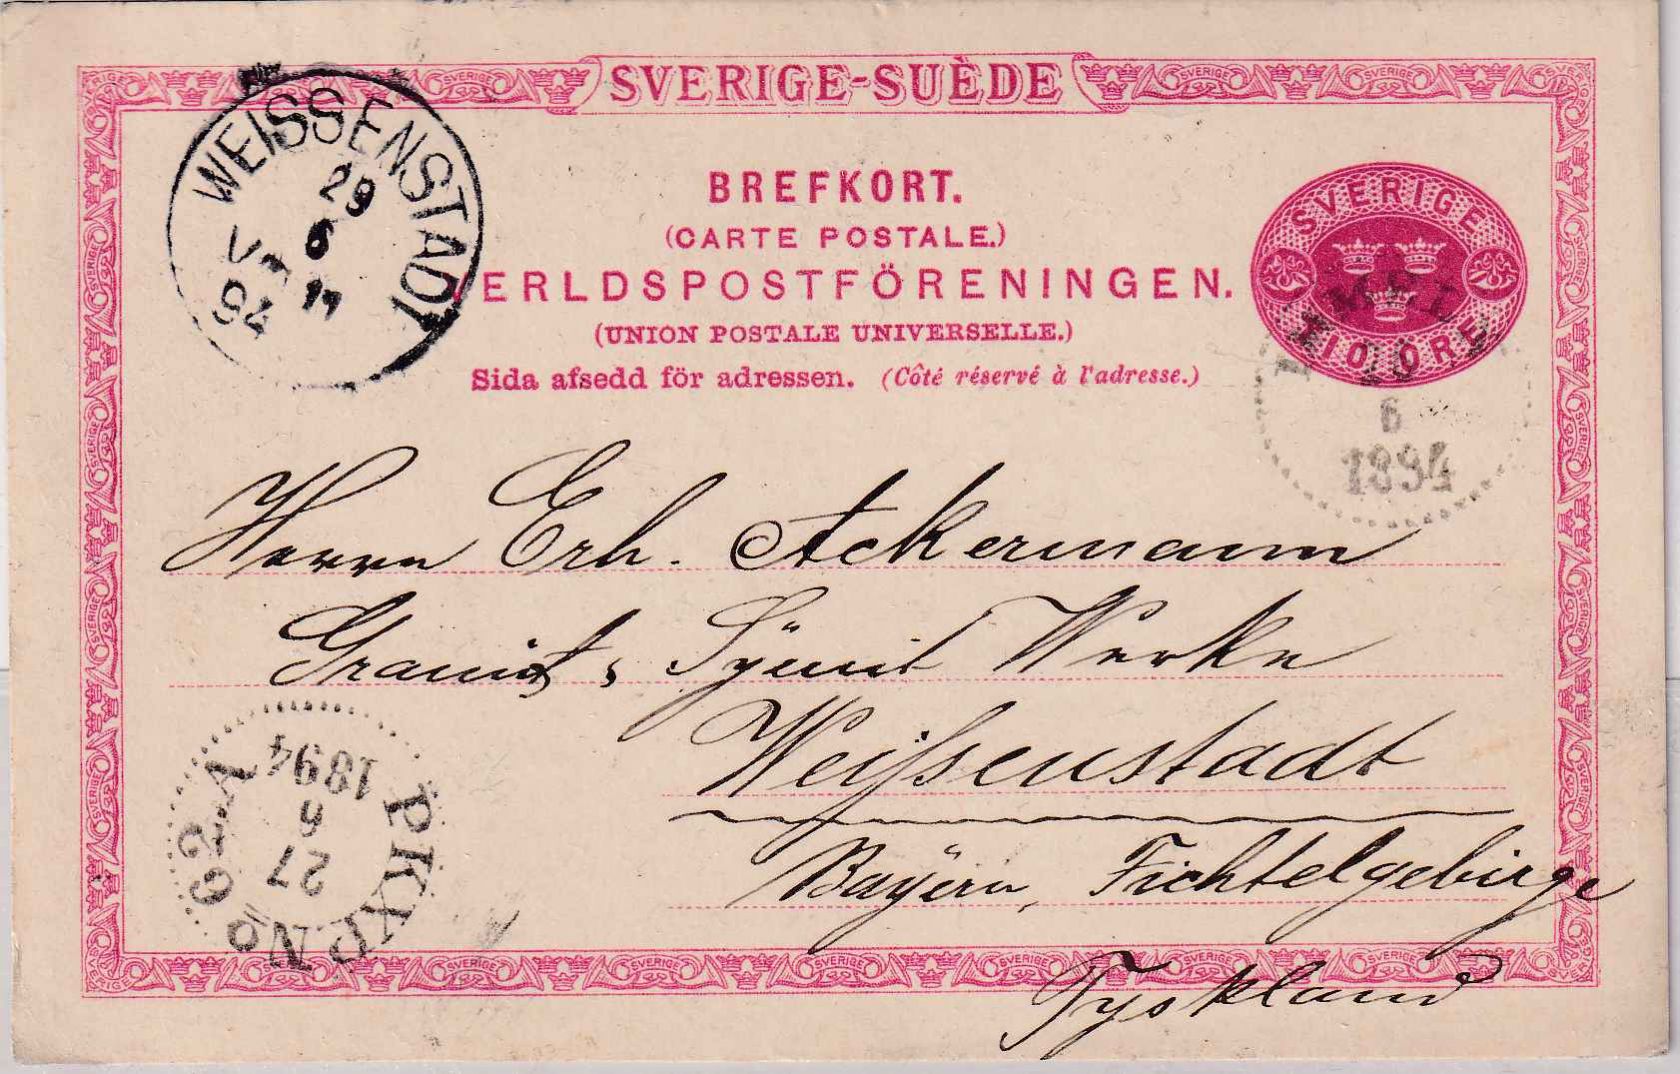 SVERIGE-SUÈDE
BREFKORT.
(CARTE POSTALE.)
ERLDSPOSTFÖRENINGEN.
(UNION POSTALE UNIVERSELLE.)
Sida afsedd för adressen. (Côté réservé à l'adresse.)
SVERIGE
TIO ÖRE
6
1894
WEISSENSTADT
29
6
94
Herrn Erh. Ackermann
Granit, Syenit Werke
Weißenstadt
Bayern, Fichtelgebirge
Tyskland
PKXP. No 62 A
27
6
1894